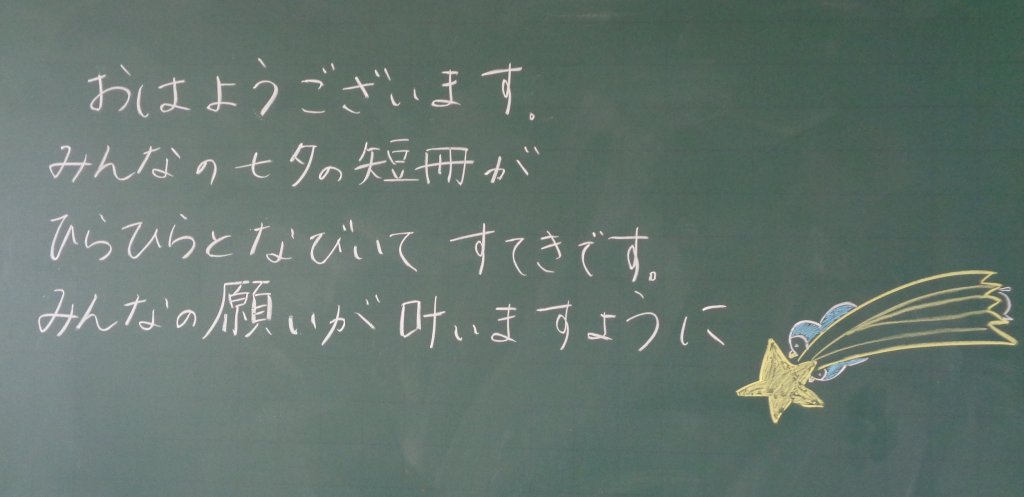 おはようございます。
みんなの七夕の短冊が
ひらひらとなびいて すてきです。
みんなの願いが叶いますように